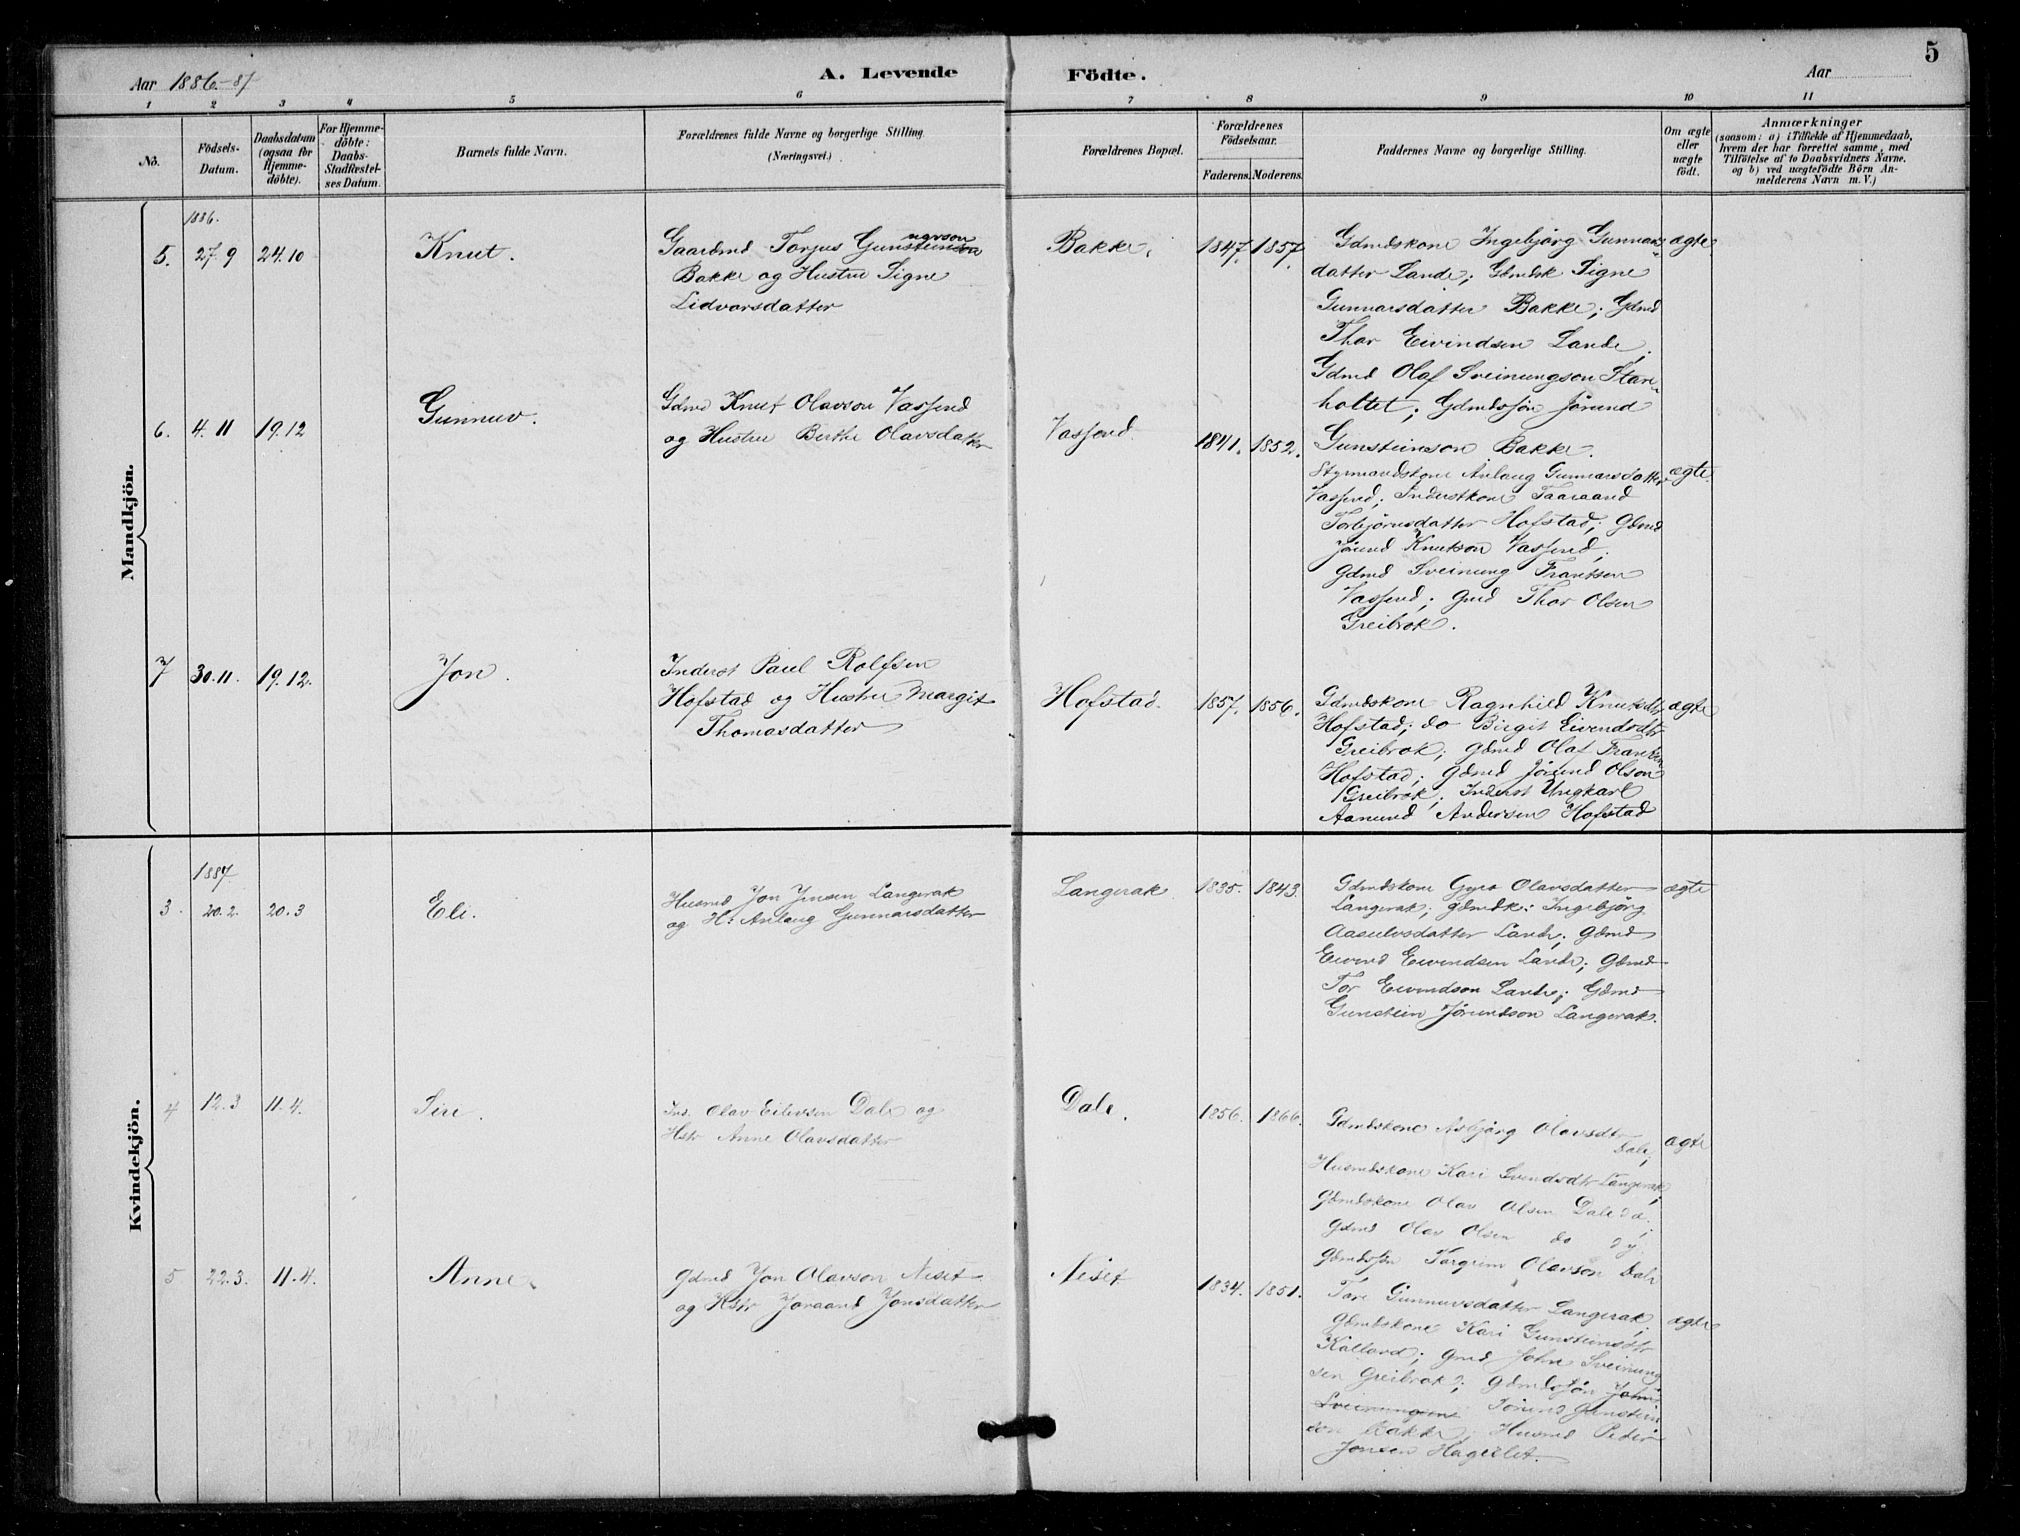 5
Aar 1886-87
A. Levende
Födte.
Aar
1 2 3 4 5 6 7 8 9 10 11
No.
Födsels-
Datum.
Daabsdatum
(ogsaa for
Hjemme-
döbte).
For Hjemme-
döbte:
Daabs-
Stadfæstel-
ses Datum.
Barnets fulde Navn.
Forældrenes fulde Navne og borgerlige Stilling.
(Næringsvei.)
Forældrenes Bopæl.
Forældrenes
Födselsaar.
Faderens. Moderens.
Faddernes Navne og borgerlige Stilling.
Om ægte
eller
uægte
födt.
Anmærkninger
(saasom: a) i Tilfælde af Hjemmedaab,
hvem der har forrettet samme, med
Tilföielse af to Daabsvidners Navne.
og b) ved uægtefödte Börn An-
melderens Navn m. V.)
Mandkjön.
1886.
5. 27.9 24.10
Knut.
Gaardmd Torjus Gunsteinson
Bakke og Hustru Signe
Lidvorsdatter
Bakke.
1847. 1857.
Gdmdskone Ingebjörg Gunnars-
datter Lande; Gdmdsk Signe
Gunnarsdatter Bakke; Gdmd
Thor Eivindsen Lande;
Gdmd Olaf Sveinungson Stare-
holtet; Gdmdssön Jörund
Gunsteinson Bakke.
ægte
6. 4.11 19.12
Gunnuv.
Gdmd Knut Olavson Vasjend
og Hustru Berthe Olavsdatter
Vasjend.
1841. 1852.
Styrmandskone Anlaug Gunnarsdatter
Vasjend; Inderstkone Taaraand
Torbjörnsdatter Hofstad; Gdmd
Jörund Knutson Vasjend;
Gdmd Sveinung Frantsen
Vasjend; Gmd Thor Olsen
Greibrok.
ægte.
7 30.11. 19.12.
Jon.
Inderst Paul Rolfsen
Hofstad og Hustru Margit
Thomasdatter
Hofstad.
1857. 1856.
Gdmdskone Ragnhild Knutsdtr
Hofstad; do Birgit Eivendsdtr
Greibrok; Gdmd Olaf Frantsen
Hofstad; Gdmd Jörund Olson
Greibrok; Inderst Ungkarl
Aanund Andersen Hofstad
ægte
Kvindekjön.
1887.
3. 20.2. 20.3
Eli.
Husmd Jon Jensen Langerak
og H: Anlaug Gunnarsdatter
Langerak
1835. 1843.
Gdmdskone Gyro Olavsdatter
Langerak; Gdmdk: Ingebjörg
Aasulvsdatter Lande; Gdmd
Eivind Eivindsen Lande; Gdmd
Tor Eivindson Lande; Gdmd
Gunstein Jörundson Langerak.
ægte
4 12.3 11.4.
Siri.
Ind. Olav Eilevsen Dale og
Hstr Anne Olavsdatter
Dale.
1856. 1866.
Gdmdskone Asbjörg Olavsdtr
Dale;
Husmdskone Kari Svendsdtr Langerak;
Gdmdskone Olav Olsen Dale
Gdmd Olav Olsen do
Gdmdssön Torgrim Olavson Dale
ægte
5 22.3. 11.4.
Anne.
Gdmd Jon Olavson Neset
og Hstr Joraand Jonsdatter
Neset
1834. 1851.
Tore Gunnuvsdatter Langerak;
Gdmdskone Kari Gunsteinsdtr
Kollard; Gmd John Sveinung
sen Greibrok; Gdmdssön John
Sveinungsen Jörund Gunstein
son Bakke; Husmd Peder
Jonsen Hagedlet.
ægte